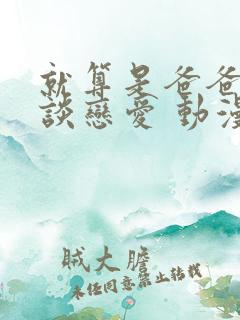 就算是爸爸
談戀愛 動漫
賊大膽
未經同意禁止轉載